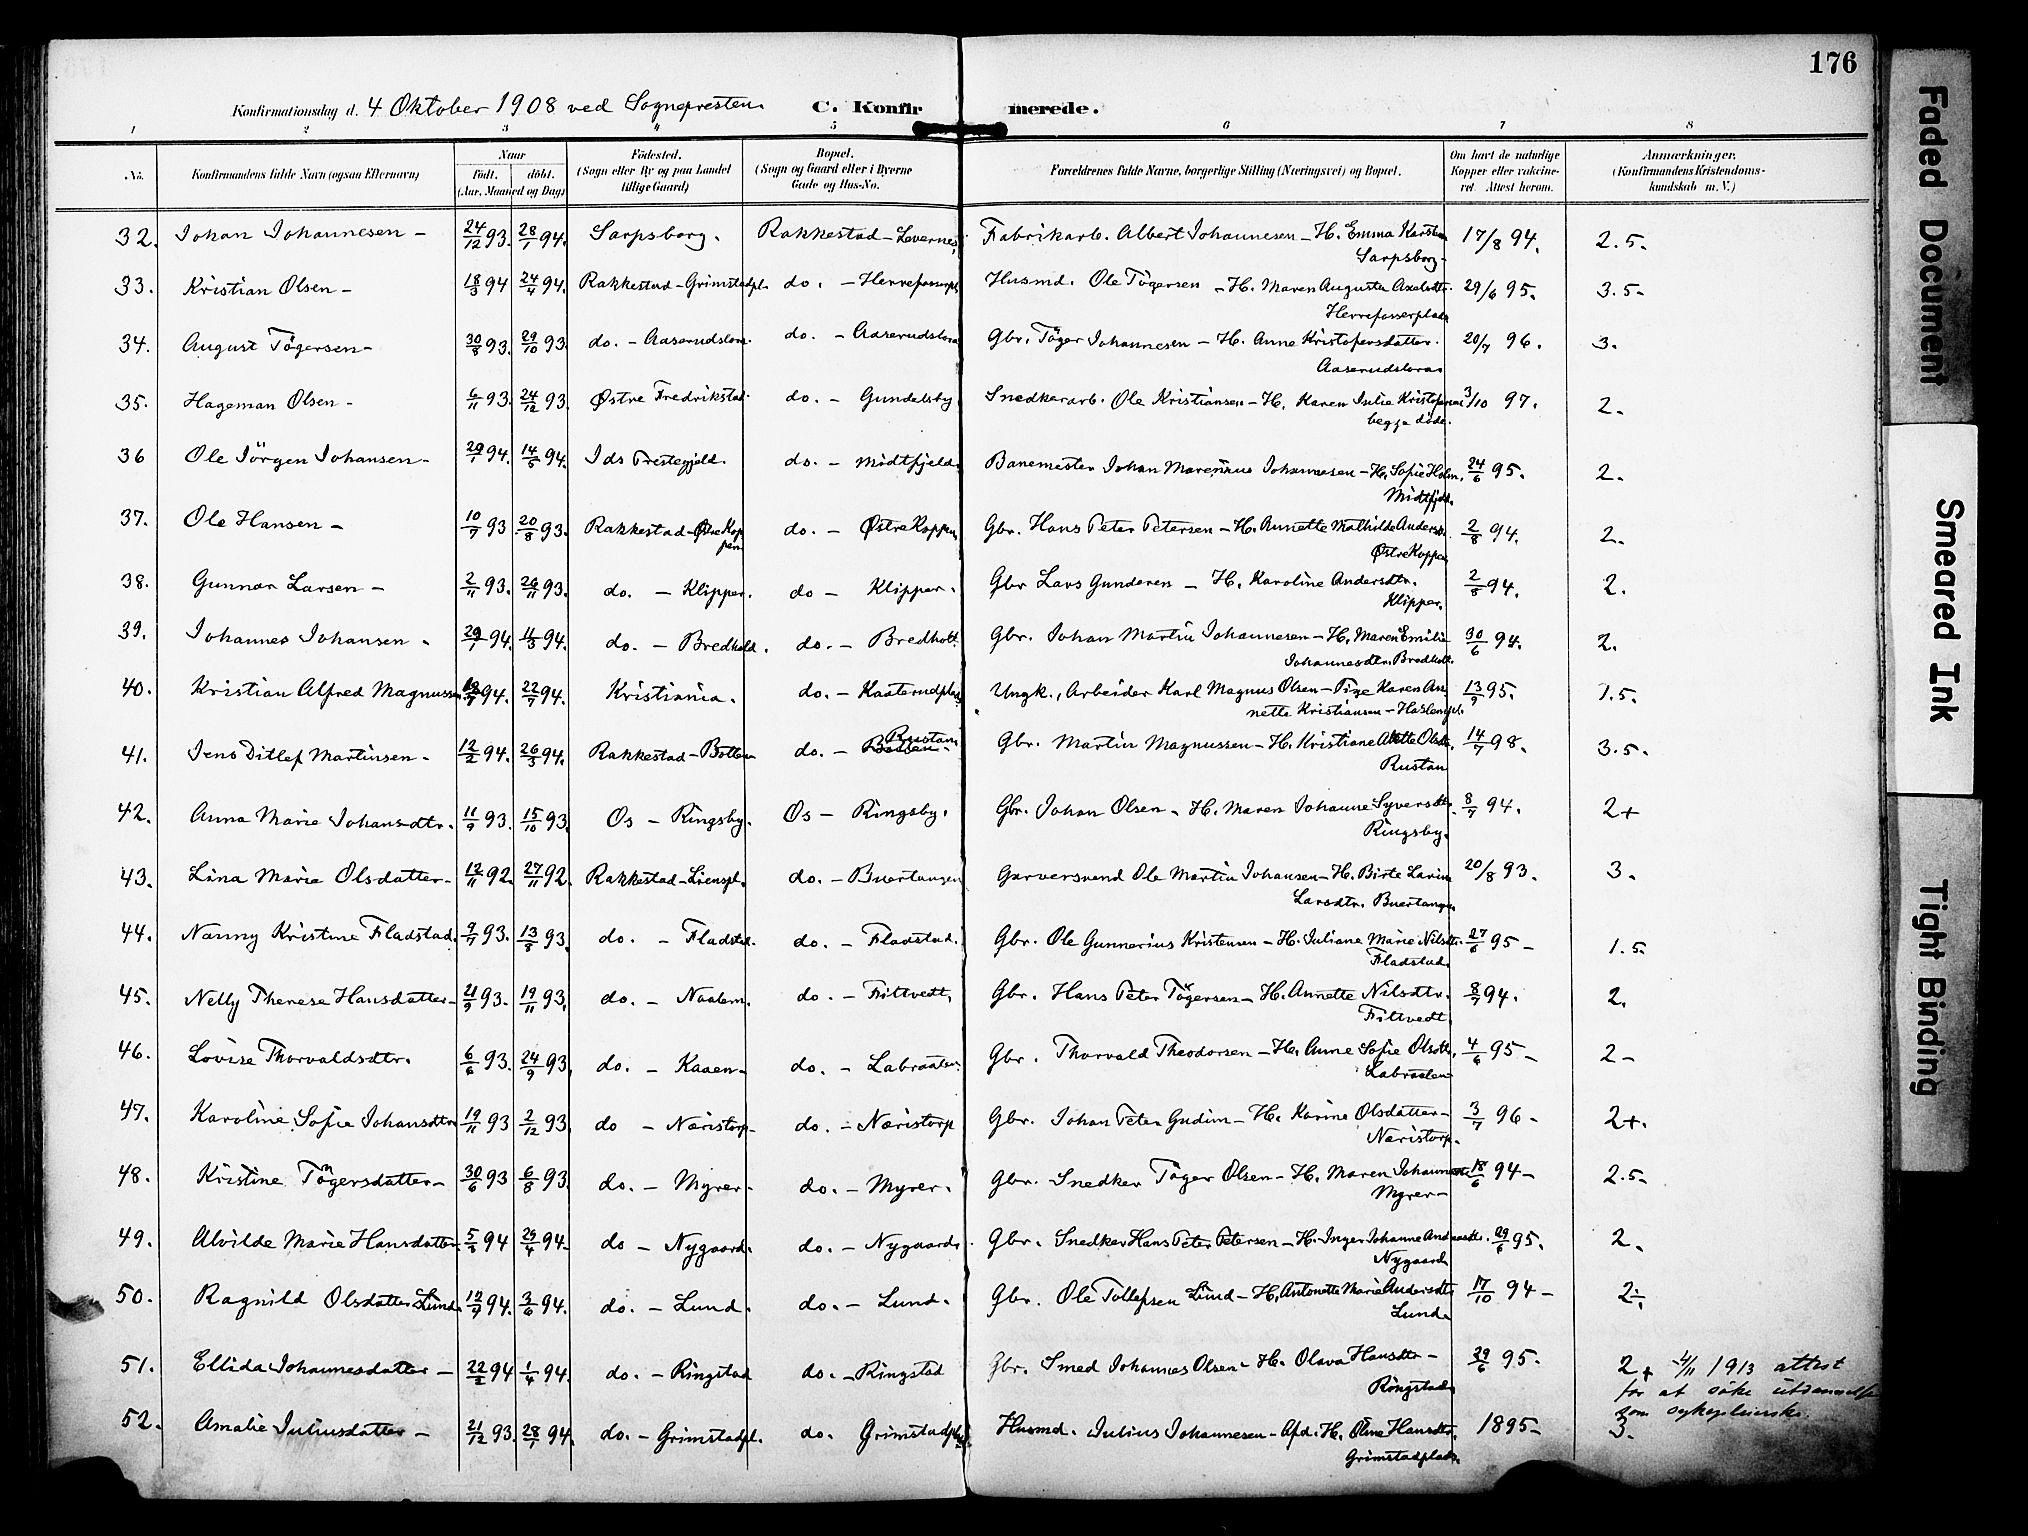 176
Konfirmationsdag d. 4 Oktober 1908 ved Sognepresten. C. Konfirmerede.
1 2 3 4 5 6 7 8
No. Konfirmandens fulde Navn (ogsaa Efternavn) Naar Født. døbt. (Aar, Maaned og Dag) Fødested. (Sogn eller By og paa Landet tillige Gaard) Bopæl. (Sogn og Gaard eller i Byerne Gade og Hus-No. Forældrenes fulde Navne, borgerlige Stilling (Næringsvei) og Bopæl. Om havt de naturlige Kopper eller vaccineret Attest herom. Anmærkninger. (Konfirmandens Kristendomskundskab m. V.)
32. Johan Johannesen – 24/12 93. 28/1 94. Sarpsborg. Rakkestad – Levernes, Fabrikarb. Albert Johannesen – H. Emma Karsten 17/8 94. 2.5.
Sarpsborg –
33. Kristian Olsen – 18/3 94 24/4 94. Rakkestad – Grimstadpl. do. – Herrefosserpl. Husmd. Ole Tögersen – H. Maren Augusta Axelsdtr. 29/6 95. 3.5 –
Herrefosserplads
34. August Tögersen – 30/8 93. 29/10 93 do. – Aaserudslora. do. – Aaserudslora Gbr. Töger Johannesen – H. Anne Kristofersdatter. 20/7 96. 3.
Aaserudslora
35. Hageman Olsen – 6/11 93. 24/12 93. Østre Fredrikstad. do. – Gundelsby Snedkerarb. Ole Kristiansen – H. Karen Julie 3/10 97. 2.
begge döde.
36 Ole Jörgen Johansen – 29/1 94. 14/5 94. Ids Prestegjeld. do. – Midtfjeld. Banemester Johan Marenius Johannesen – H. Sofie Holm. 24/6 95. 2.
Midtfjeld.
37. Ole Hansen – 10/7 93 20/8 93. Rakkestad – Østre Koppen do. – Østre Koppen Gbr. Hans Peter Petersen – H. Annette Mathilde Andersd. 2/8 94. 2.
Østre Koppen
38. Gunnar Larsen – 2/11 93. 26/11 93. do. – Klipper. do – Klipper. Gbr Lars Gundersen – H. Karoline Andersdtr. 2/8 94. 2.
Klipper.
39. Johannes Johansen. 29/1 94. 4/3 94. do. – Bredholt. do. – Bredholt. Gbr. Johan Martin Johannesen – H. Maren Emilie 30/6 94. 2.
Johannesdtr. Bredholt.
40. Kristian Alfred Magnussen 94. 22/7 94. Kristiania. do. – Kaaterudplads Ungk., Arbeider Karl Magnus Olsen – Pige Karen An- 13/9 95. 1.5.
nette Kristiansen – Haslempl.
41. Jens Ditlef Martinsen – 12/2 94. 26/3 94. Rakkestad – Botten do. – Rustan Gbr. Martin Magnussen – H. Kristiane Alette Olsdtr. 14/7 98. 3.5.
Rustan
42. Anna Marie Johansdtr. 11/9 93. 15/10 93. Os – Ringsby. Os – Ringsby. Gbr. Johan Olsen – H. Maren Johanne Syversdtr. 8/7 94. 2+
Ringsby.
43. Lina Marie Olsdatter – 12/11 92. 27/11 92. Rakkestad – Lienspl. do. – Buertangen Garversvend Ole Martin Johansen – H. Birte Larine 20/8 93. 3.
Larsdtr. Buertangen
44. Nanny Kristine Fladstad. 9/7 93. 13/8 93. do. – Fladstad. do. – Fladstad. Gbr. Ole Gunnerius Kristensen – H. Juliane Marie Nilsdtr. 27/6 95 – 1.5
Fladstad.
45. Nelly Therese Hansdatter – 21/9 93. 19/11 93. do. – Naalem. do. – Fittvedt, Gbr. Hans Peter Tögersen – H. Annette Nilsdtr. 8/7 94. 2.
Fittvedt.
46. Lovise Thorvaldsdtr. 6/6 93. 24/9 93. do. – Kaaen – do. – Labraaten. Gbr. Thorvald Theodorsen – H. Anne Sofie Olsdtr. 4/6 95 – 2 –
Labraaten
47. Karoline Sofie Johansdtr 19/11 93 2/12 93. do – Næristorp – do. – Næristorp Gbr. Johan Peter Gudim – H. Karine Olsdatter – 3/7 96 – 2+.
Næristorp.
48. Kristine Tögersdatter – 30/6 93 6/8 93. do. – Myrer – do. – Myrer. Gbr. Snedker Töger Olsen – H. Maren Johannesdtr 18/6 94 – 2.5 –
Myrer –
49. Alvilde Marie Hansdatter 5/3 94 29/4 94 – do – Nygaard. do. – Nygaard. Gbr. Snedker Hans Peter Petersen – H. Inger Johanne 29/6 95. 2.
Nygaard
50. Ragnild Olsdatter Lund. 94. 3/6 94. do. – Lund. do. – Lund. Gbr. Ole Tollefsen Lund – H. Antonette Marie Andersdtr 17/10 94 – 2÷
Lund
51. Ellida Johannesdatter – 22/2 94 1/4 94. do. – Ringstad do. – Ringstad Gbr. Smed Johannes Olsen – H. Olava Hansdtr – 29/6 95. 2+ 4/11 1913 attest
Ringstad for at söke utdannelse
som sykepleierske.
52. Amalie Juliusdatter – 21/12 93. 28/1 94. do. – Grimstadpl. do. Grimstadpl. Husmd. Julius Johannesen – Afd. H. Oline Hansdtr. 1895 – 3.
Grimstadplads.
Faded Document
Smeared Ink
Tight Binding